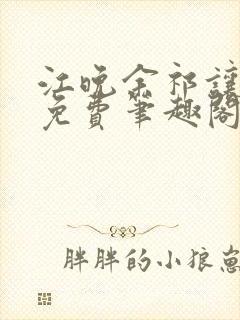 江晚余祁让
免费笔趣阁
胖胖的小狼崽